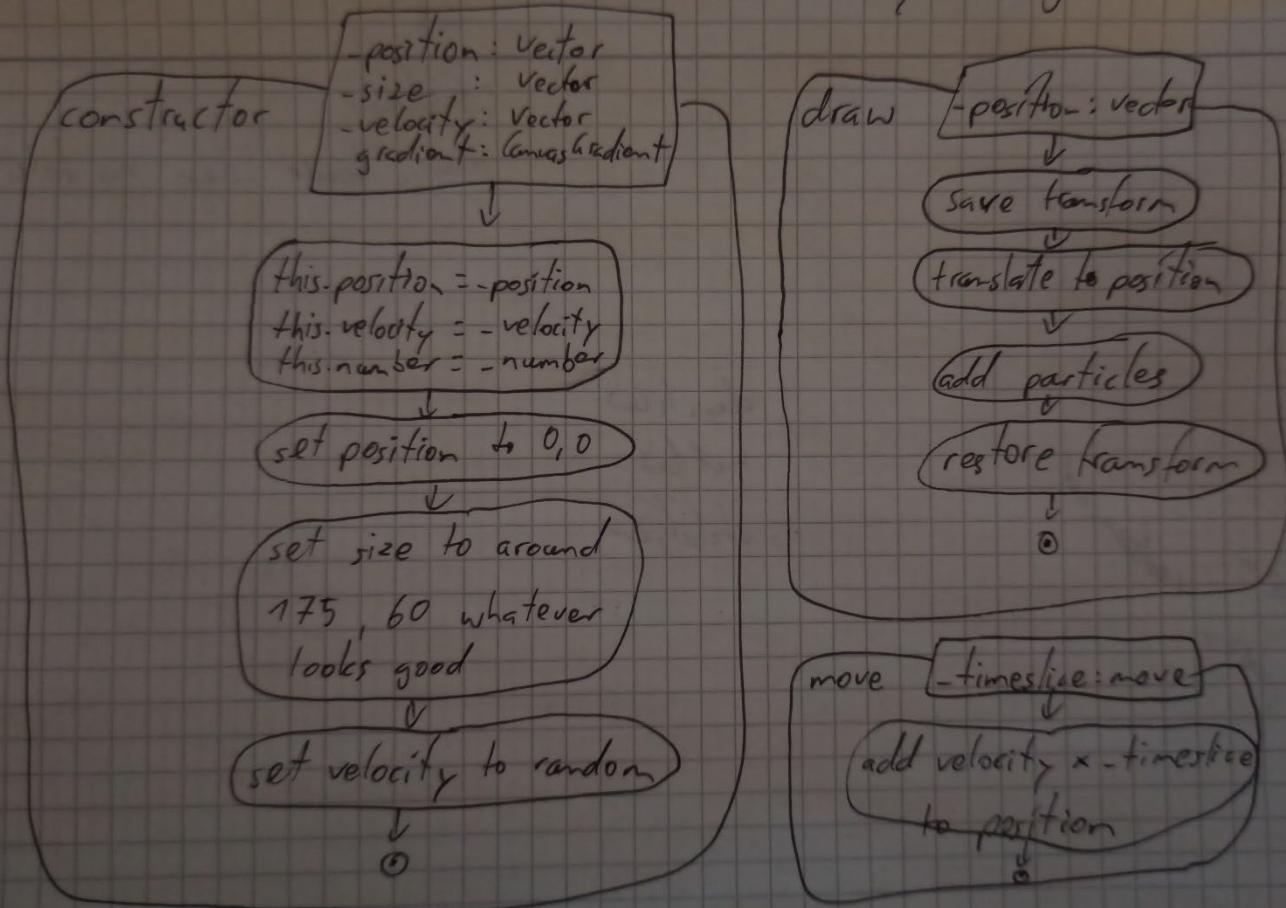 constructor
-position: vector
-size : vector
-velocity: vector
gradient: CanvasGradient
this.position = -position
this.velocity = -velocity
this.number = -number
set position to 0,0
set size to around
175, 60 whatever
looks good
set velocity to random
draw
-position: vector
save transform
translate to position
add particles
restore transform
move
-timeslice: move
add velocity x -timeslice
to position